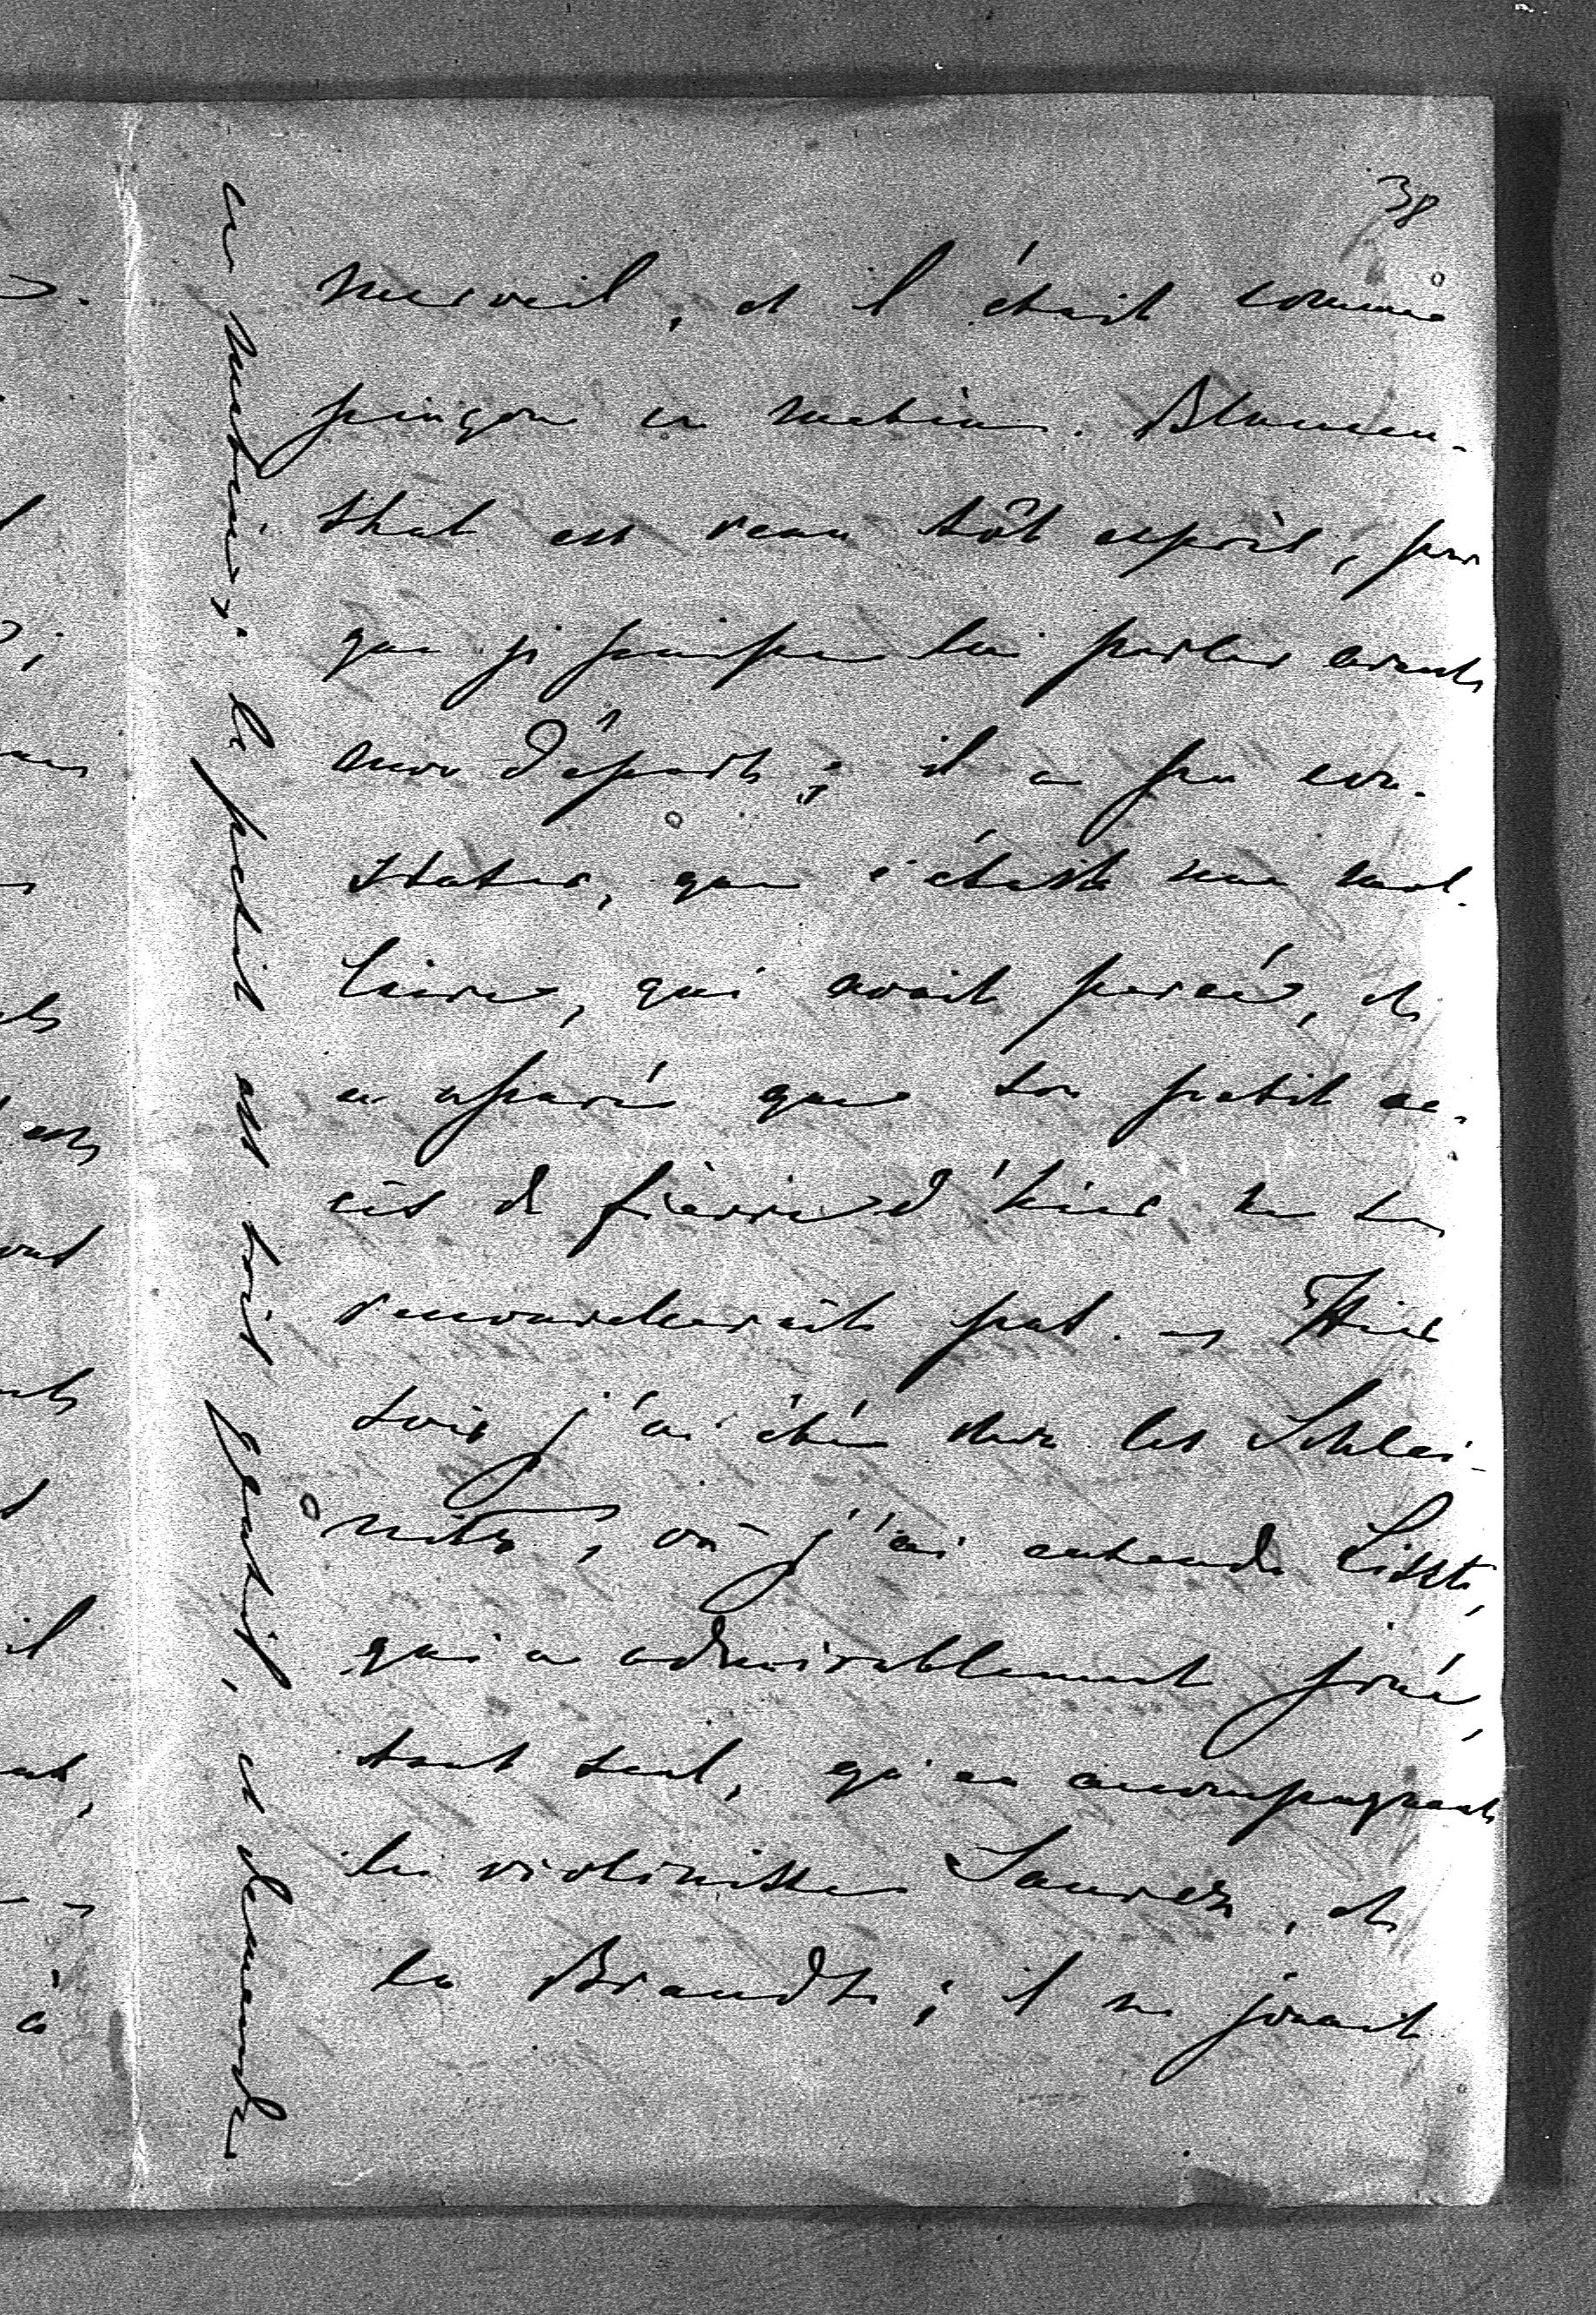 38
merveil, et il était comme
pinçon ce matin. Blumen-
thal est venu tôt exprès, pour
que je puisse lui parler avant
mon départ; il a pu con-
stater, que c'était une mol-
laire, qui avait percée, et
a assuré que son petit ac-
cès de fièvre d'hier ne se
renouvellerait pas. – Hier
soir j'ai été chez les Schlei-
nitz, où j'ai entendu Liszt,
qui a admirablement joué,
tout seul, qu'en accompagnant
le violiniste Sauret, et
la Brandt; il ne jouait
ce matin. le petit est très gentil, et demande